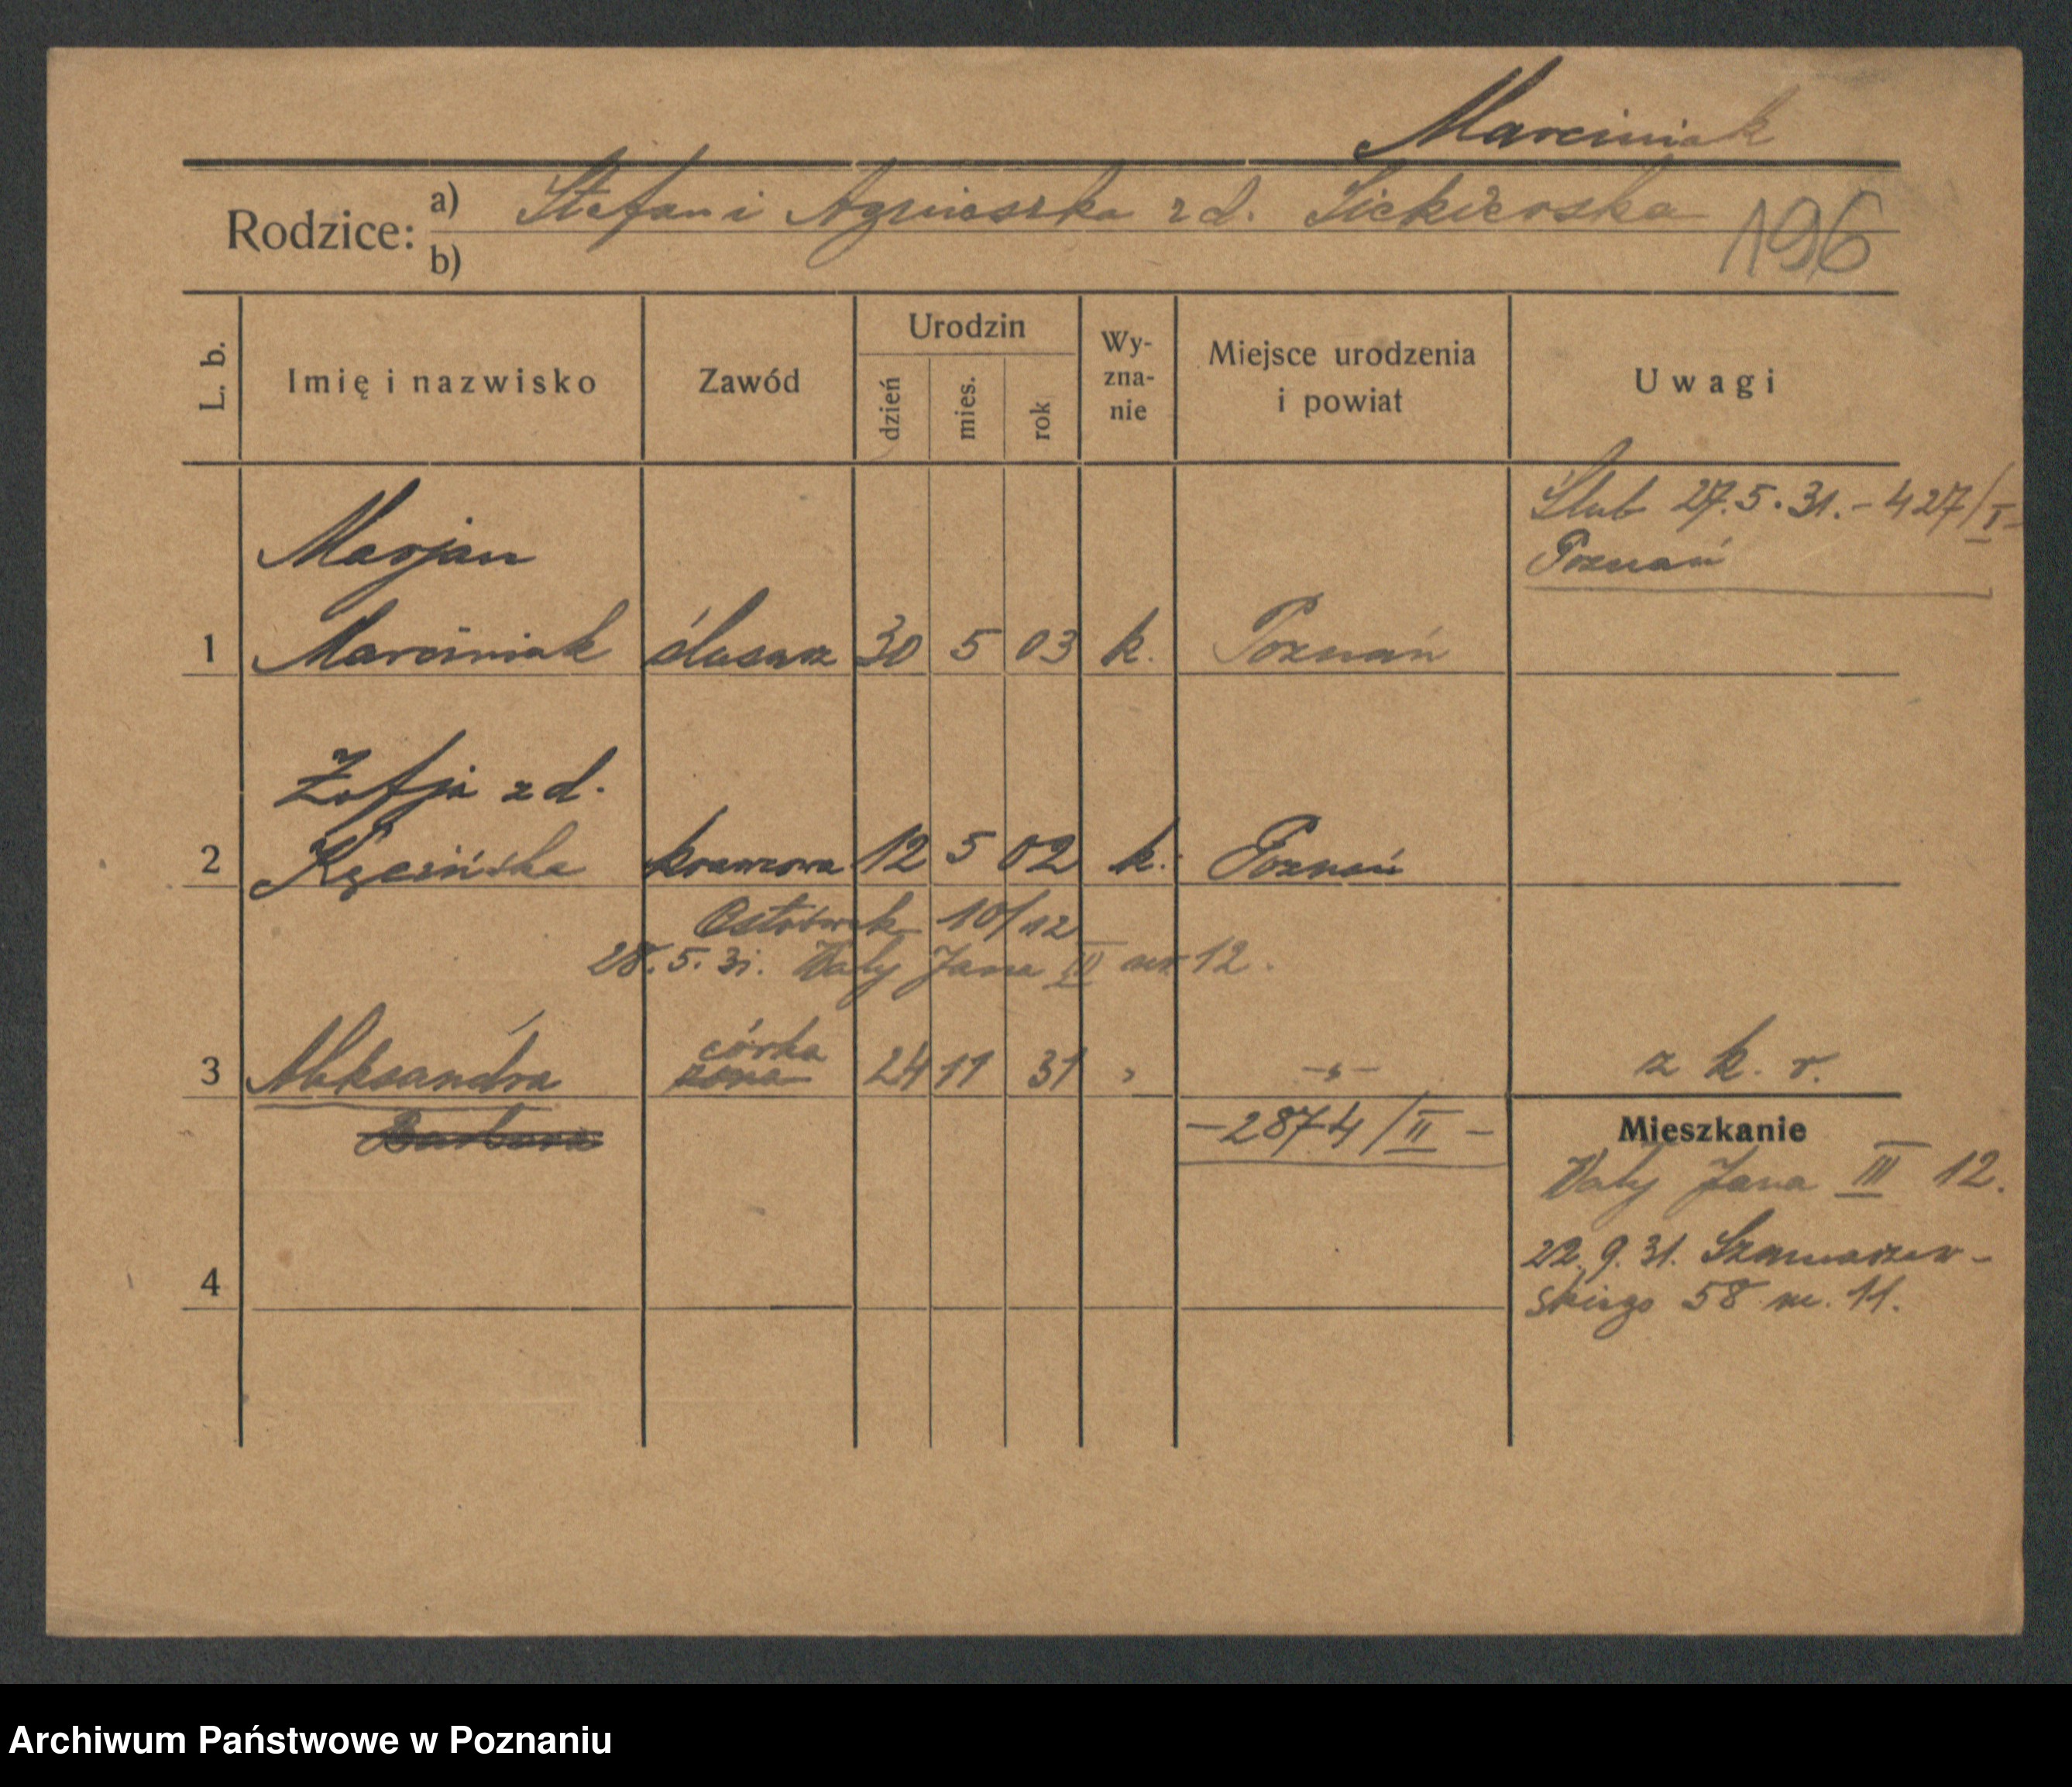 Marciniak
Rodzice: a) Stefan i Agnieszka z d. Siekierska
b)
196
L. b. Imię i nazwisko Zawód Urodzin dzień mies. rok Wy-zna-nie Miejsce urodzenia i powiat Uwagi
Ślub 27.5.31. - 427/I -
Poznań
Marjan
1 Marciniak ślusarz 30 5 03 k. Poznań
Zofja z d.
2 krawcowa 12 5 02 k. Poznań
Ostrówek 10/12
28.5.31. Wały Jana III nr 12.
córka
3 Aleksandra żona 24 11 31 " -"- z k. r.
Barbara
- 2874/II -
Mieszkanie
Wały Jana III 12.
22.9.31. Szamarzew-
4
skiego 58 m. 11.
Archiwum Państwowe w Poznaniu